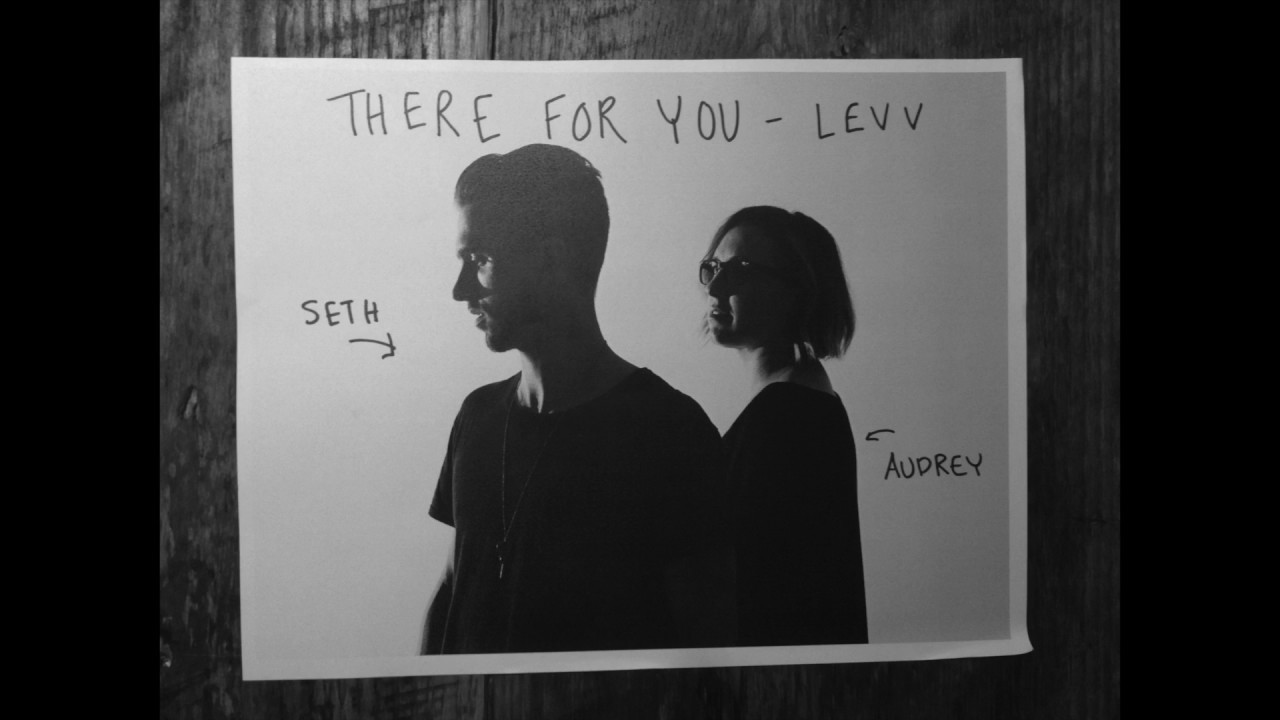 THERE FOR YOU - LEVV
SETH
AUDREY